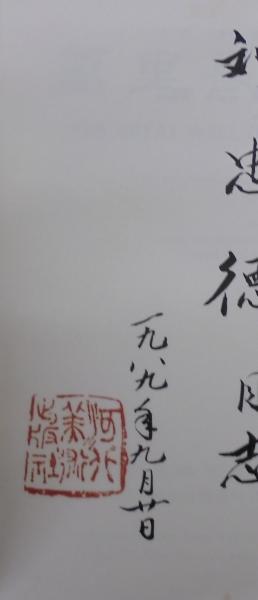 忠德同志
一九八九年九月廿日
河北
美術
出版社